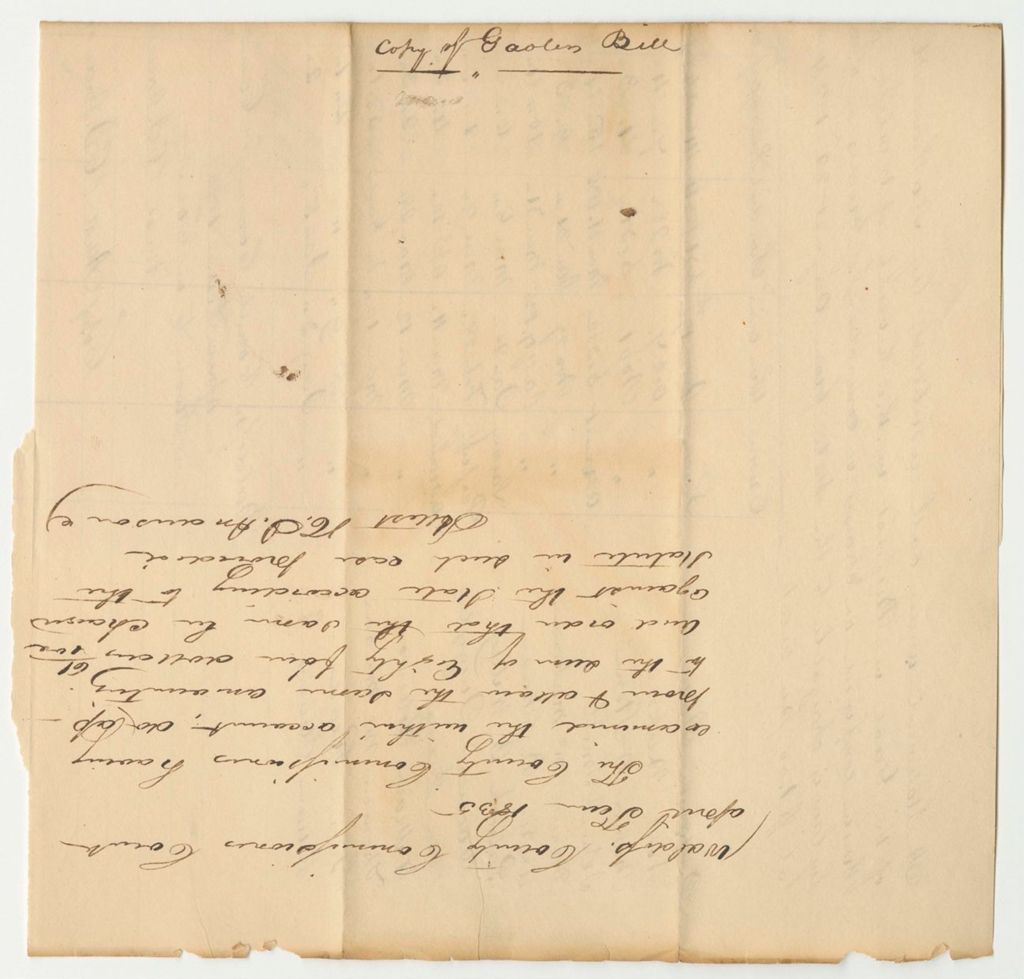 Copy of Gaolers Bill
Waldo ss. County Commissioners Court
April Term 1835
The County Commissioners having
examined the within account, do ap
prove & allow the same amounting
to the sum of Eighty four dollars 61/100
and order that the same be charged
against the State according to the
Statute in such case provided
Attest